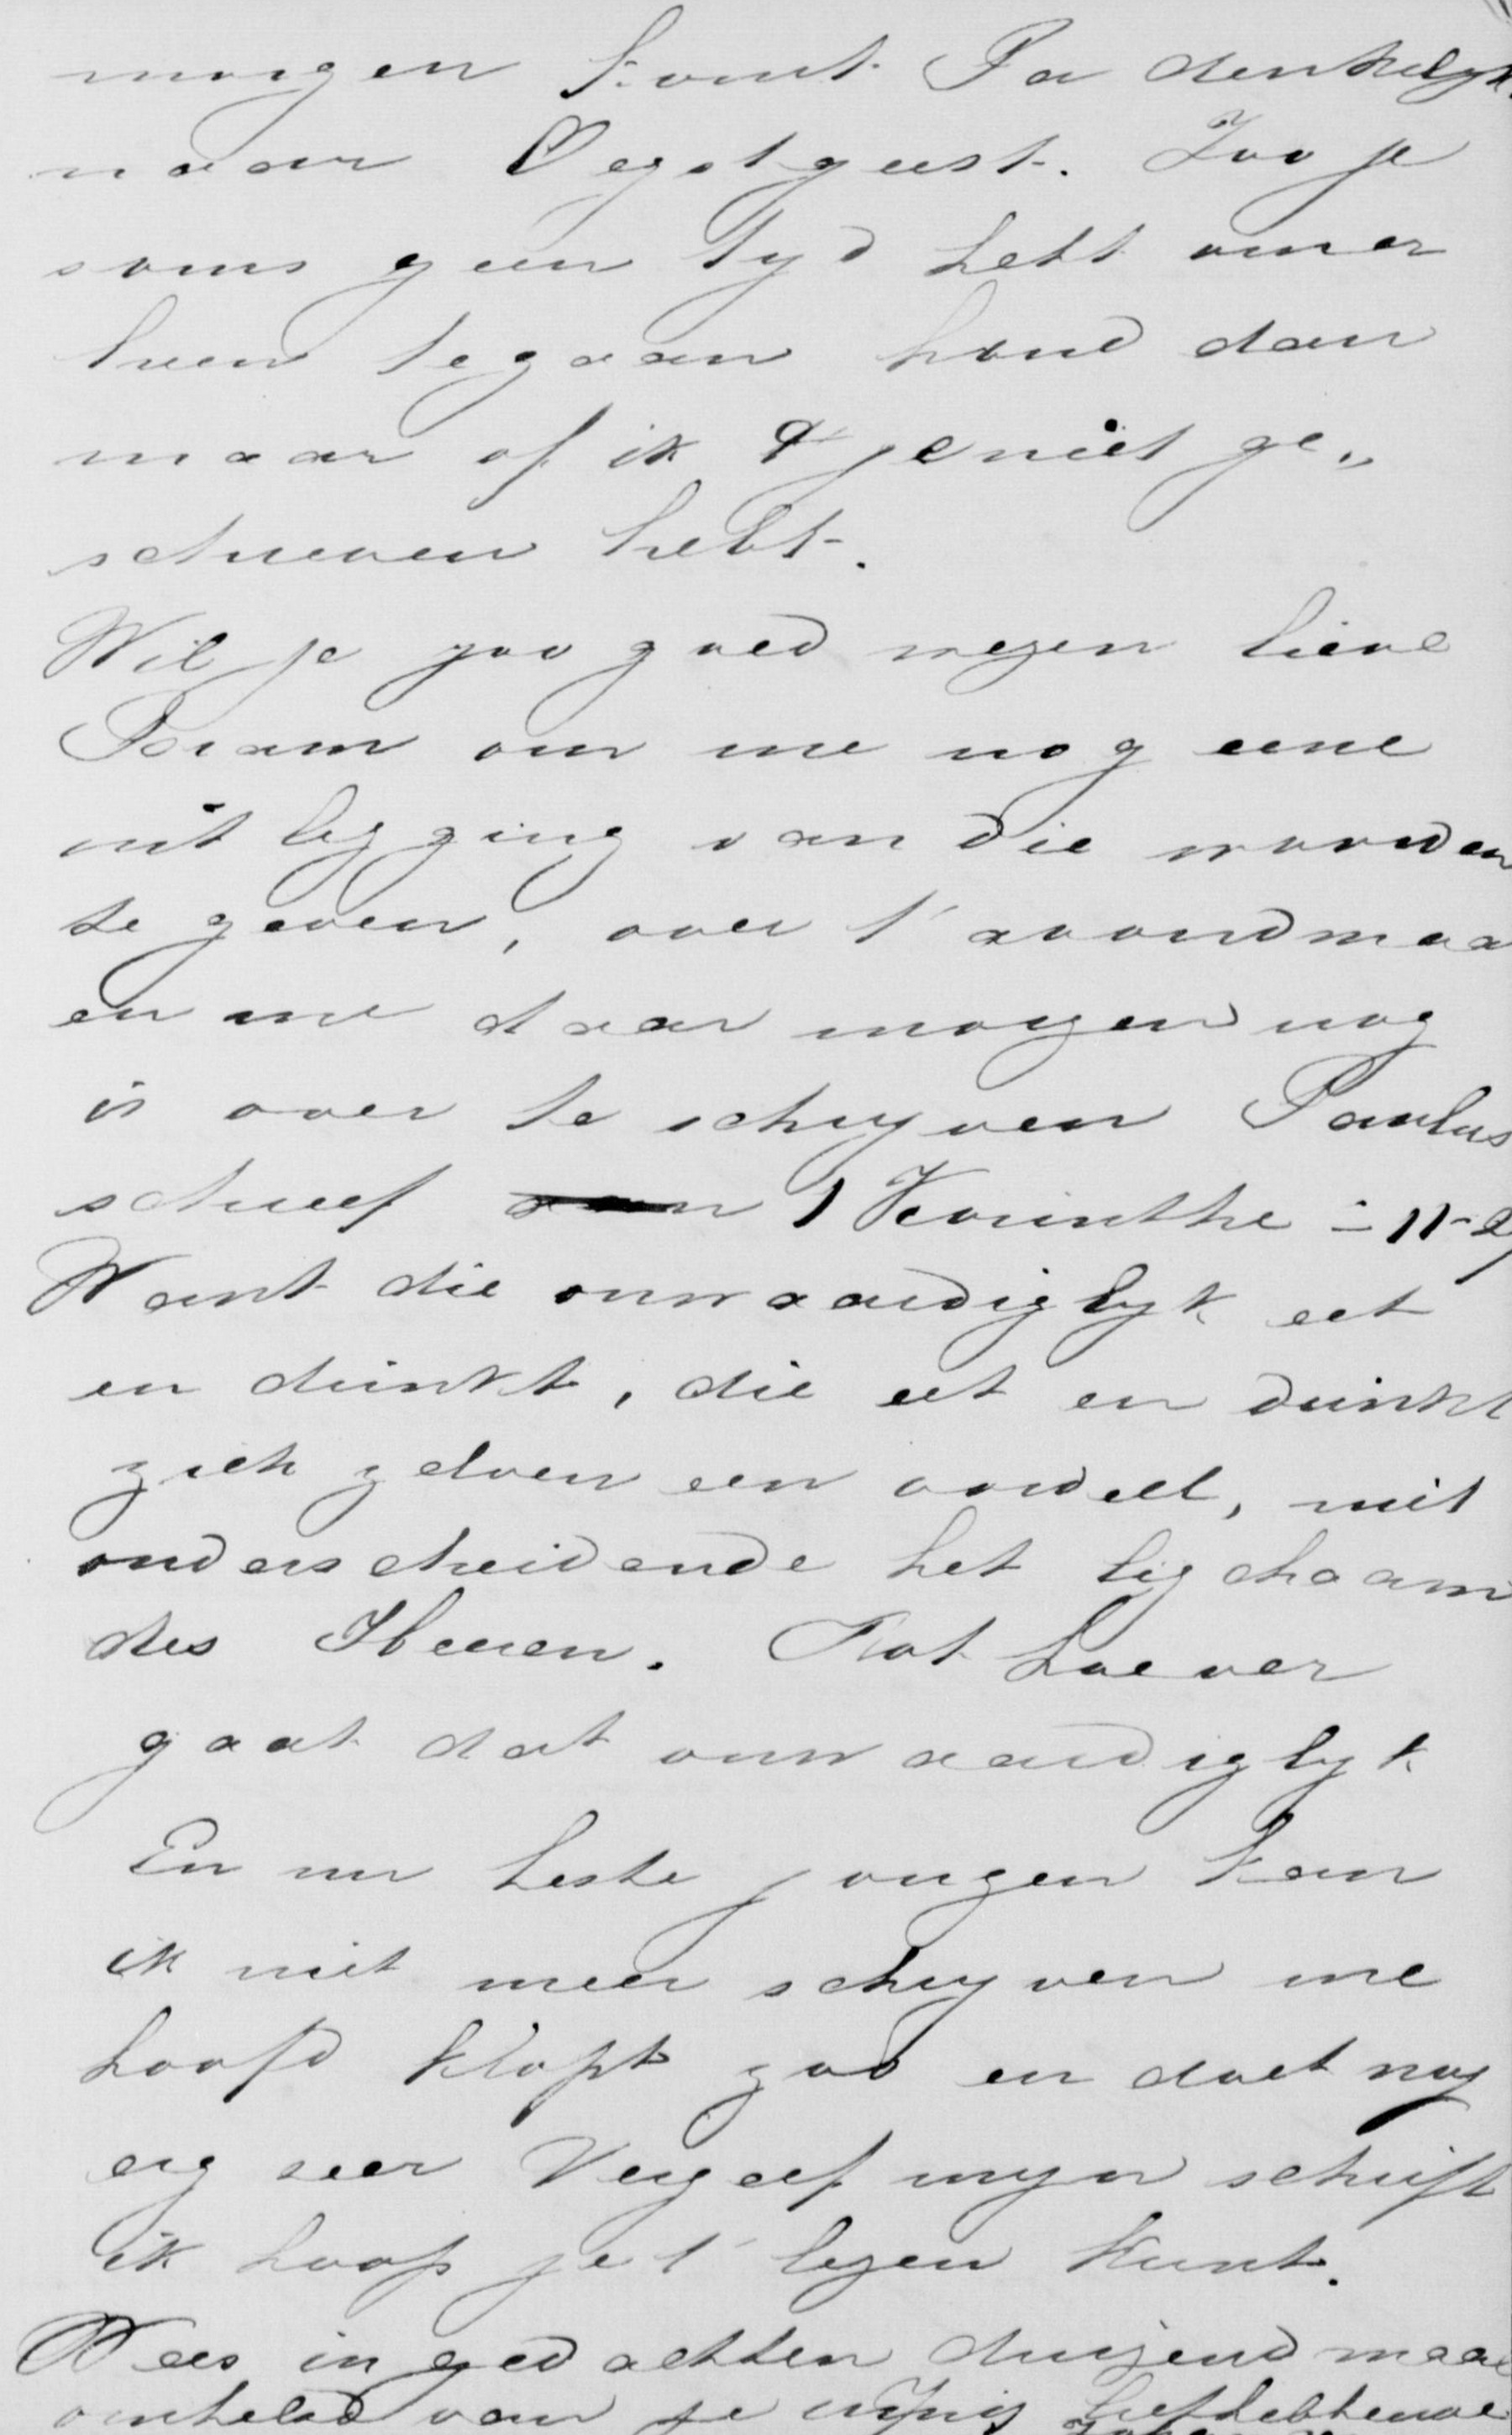 morgen komt Pa denkelyk
naar Oegstgeest. Zoo je
soms geen tyd hebt om er
heen te gaan houd dan
maar of ik 't je niet ge„
schreven hebt.
Wil je zoo goed wezen lieve
Bram om me nog eene
uitlegging van die woorden
te geven, over 't avondmaa
en me daar morgen nog
is over te schryven Paulus
schreef 1 Korinthe - 11-29
Want die onwaardiglyk eet
en drinkt, die eet en drinkt
zich zelven een oordeel, niet
onderscheidende het ligchaam
des Heeren. Tot hoever
gaat dat onwaardiglyk
En nu beste jongen kan
ik niet meer schryven me
hoofd klopt zoo en doet nog
erg seer Vergeef myn schrift
ik hoop je 't lezen kunt.
Wees in gedachten duizendmaal
omhelsd van je innig liefhebbende